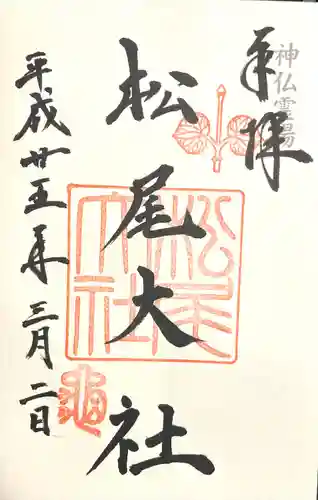 神仏霊場
奉拝
松尾大社
松尾大社
平成廿五年三月二日